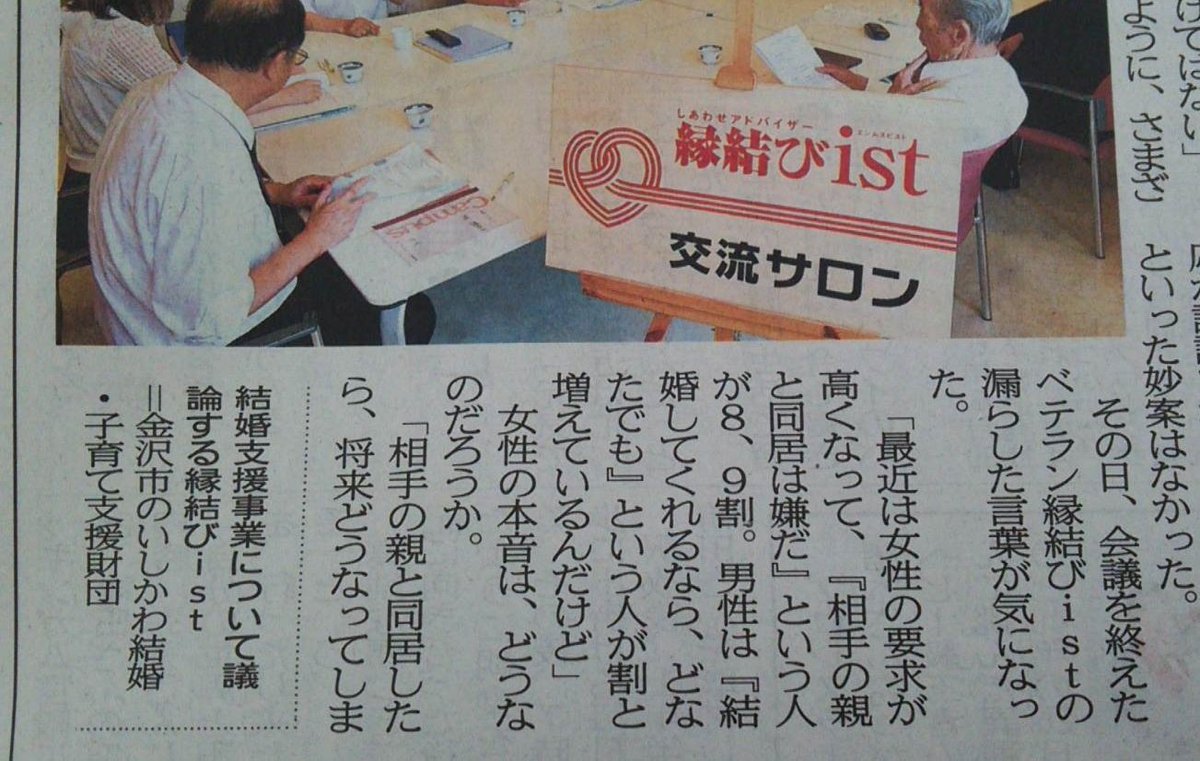 しあわせアドバイザー
エンムスビスト
縁結びist
交流サロン
Campus
けではない」
ように、さまざ
といった妙案はなかった。
その日、会議を終えた
ベテラン縁結びistの
漏らした言葉が気になっ
た。
「最近は女性の要求が
高くなって、『相手の親
と同居は嫌だ』という人
が8、9割。男性は『結
婚してくれるなら、どな
たでも』という人が割と
増えているんだけど」
女性の本音は、どうな
のだろうか。
「相手の親と同居した
ら、将来どうなってしま
結婚支援事業について議
論する縁結びist
＝金沢市のいしかわ結婚
・子育て支援財団